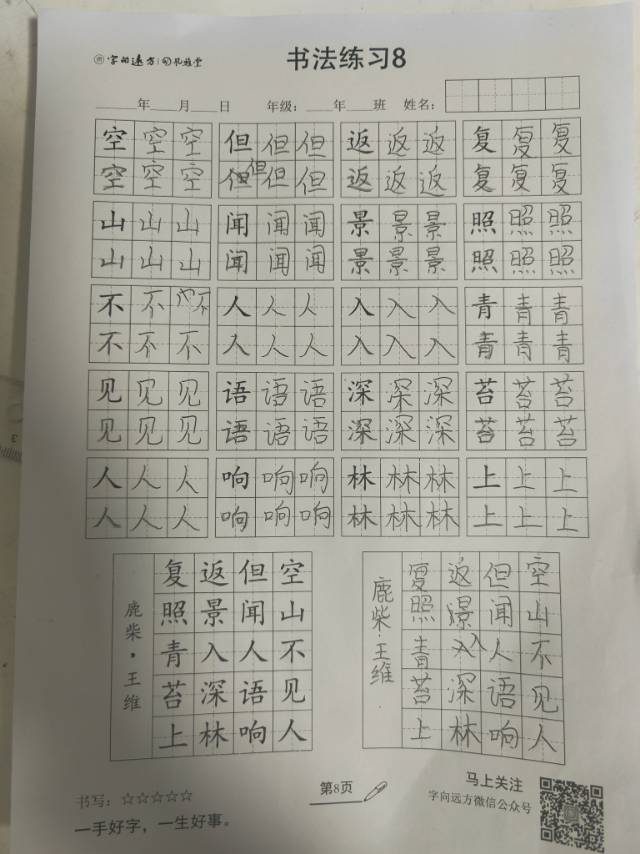 字向远方 礼雅堂
书法练习8
年 月 日 年级： 年 班 姓名：
空空空 但但但 返返返 复复复
空空空 但但但但 返返返 复复复
山山山 闻闻闻 景景景 照照照
山山山 闻闻闻 景景景 照照照
不不不 人人人 入入入 青青青
不不不 人人人 入入入 青青青
见见见 语语语 深深深 苔苔苔
见见见 语语语 深深深 苔苔苔
人人人 响响响 林林林 上上上
人人人 响响响 林林林 上上上
空山不见人
但闻人语响
返景入深林
复照青苔上
鹿柴·王维
空山不见人
但闻人语响
返景入深林
复照青苔上
鹿柴·王维
书写：☆☆☆☆☆
一手好字，一生好事。
第8页
马上关注
字向远方微信公众号